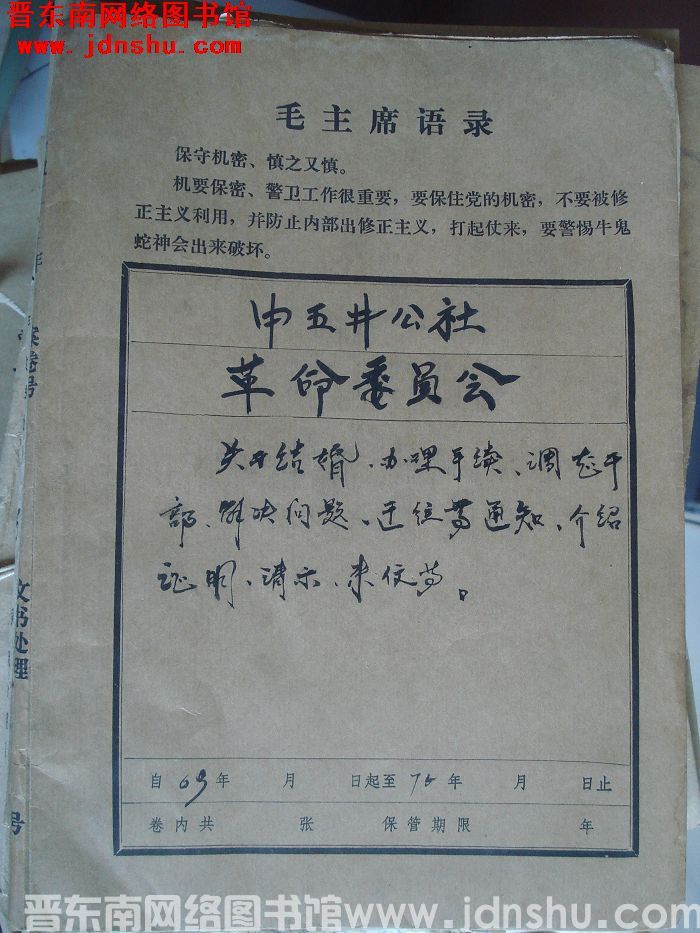 晋东南网络图书馆
www.jdnshu.com
毛主席语录
保守机密、慎之又慎。
机要保密、警卫工作很重要，要保住党的机密，不要被修
正主义利用，并防止内部出修正主义，打起仗来，要警惕牛鬼
蛇神会出来破坏。
申五井公社
革命委员会
关于结婚、办理手续、调整干
部、解决问题、迁往等通知、介绍
证明、请示、来信等。
自69年 月 日起至76年 月 日止
卷内共 张 保管期限 年
案卷号
文书处理
号
晋东南网络图书馆www.jdnshu.com